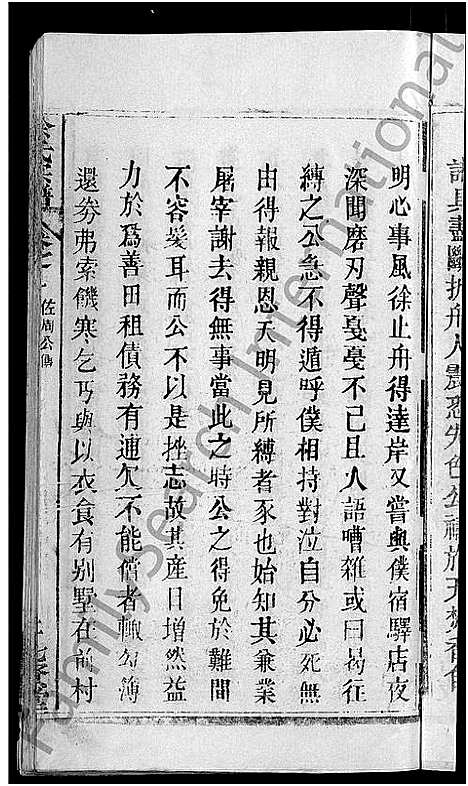 詣且盡斷折舟人
色公禱於天焚香合
明心事風徐止舟得達岸又嘗與僕宿驛店夜
深聞磨刃聲戞戞不已且人語嘈雜或曰曷往
縛之公急不得遁呼僕相持對泣自分必死無
由得報親恩天明見所縛者豕也始知其兼業
屠宰謝去得無事當此之時公之得免於難間
不容髮耳而公不以是挫志故其產日增然益
力於爲善田租債務有逋欠不能償者輒勾簿
還券弗索饑寒乞丐與以衣食有别墅在前村
佐周公傳
FamilySearch International